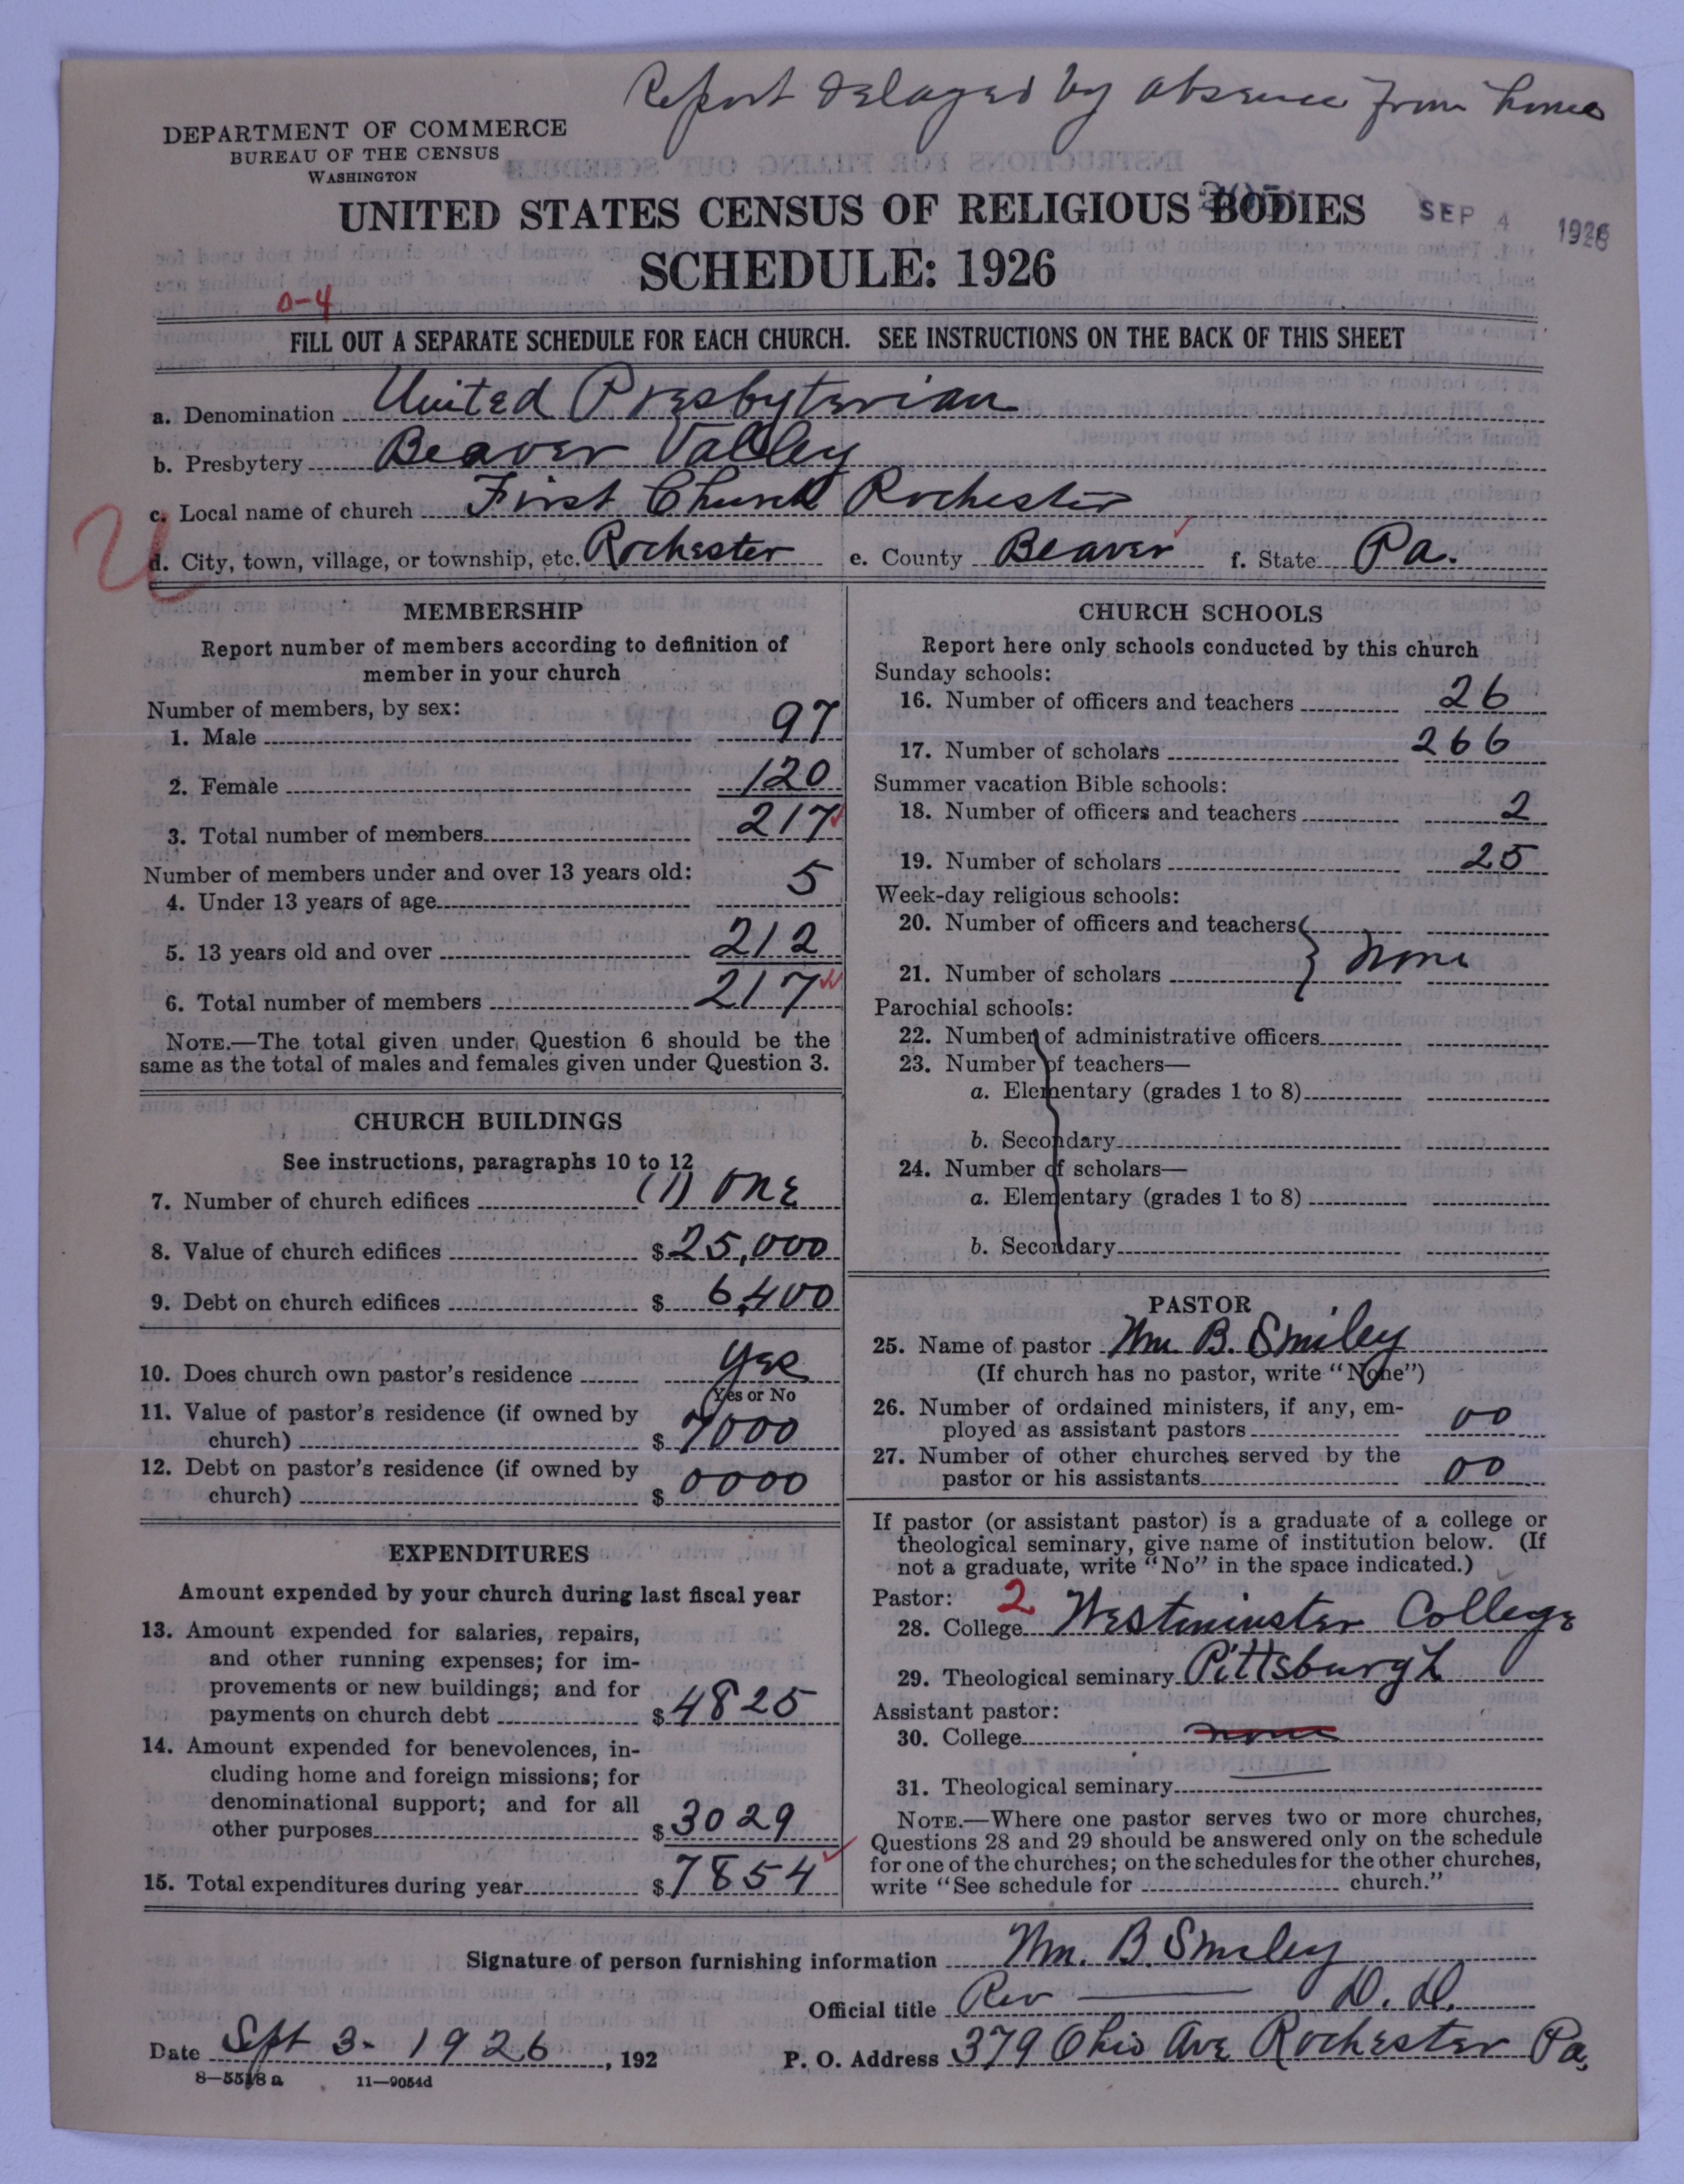 Report delayed by absence from home
DEPARTMENT OF COMMERCE
BUREAU OF THE CENSUS
WASHINGTON
UNITED STATES CENSUS OF RELIGIOUS BODIES
SEP 4 1926
SCHEDULE: 1926
0-4
FILL OUT A SEPARATE SCHEDULE FOR EACH CHURCH. SEE INSTRUCTIONS ON THE BACK OF THIS SHEET
a. Denomination United Presbyterian
b. Presbytery Beaver Valley
c. Local name of church First Church Rochester
U
d. City, town, village, or township, etc. Rochester e. County Beaver f. State Pa.
MEMBERSHIP
Report number of members according to definition of
member in your church
Number of members, by sex:
1. Male 97
2. Female 120
3. Total number of members 217
Number of members under and over 13 years old:
4. Under 13 years of age 5
5. 13 years old and over 212
6. Total number of members 217
NOTE.—The total given under Question 6 should be the
same as the total of males and females given under Question 3.
CHURCH BUILDINGS
See instructions, paragraphs 10 to 12
7. Number of church edifices (1) one
8. Value of church edifices $25,000
9. Debt on church edifices $6,400
10. Does church own pastor's residence Yes
Yes or No
11. Value of pastor's residence (if owned by
church) $7000
12. Debt on pastor's residence (if owned by
church) $0000
EXPENDITURES
Amount expended by your church during last fiscal year
13. Amount expended for salaries, repairs,
and other running expenses; for im-
provements or new buildings; and for
payments on church debt $4825
14. Amount expended for benevolences, in-
cluding home and foreign missions; for
denominational support; and for all
other purposes $3029
15. Total expenditures during year $7854
CHURCH SCHOOLS
Report here only schools conducted by this church
Sunday schools:
16. Number of officers and teachers 26
17. Number of scholars 266
Summer vacation Bible schools:
18. Number of officers and teachers 2
19. Number of scholars 25
Week-day religious schools:
20. Number of officers and teachers
21. Number of scholars } none
Parochial schools:
22. Number of administrative officers
23. Number of teachers—
a. Elementary (grades 1 to 8)
b. Secondary
24. Number of scholars—
a. Elementary (grades 1 to 8)
b. Secondary
PASTOR
25. Name of pastor Wm. B. Smiley
(If church has no pastor, write "None")
26. Number of ordained ministers, if any, em-
ployed as assistant pastors 00
27. Number of other churches served by the
pastor or his assistants 00
If pastor (or assistant pastor) is a graduate of a college or
theological seminary, give name of institution below. (If
not a graduate, write "No" in the space indicated.)
Pastor: 2
28. College Westminster College
29. Theological seminary Pittsburgh
Assistant pastor:
30. College none
31. Theological seminary
NOTE.—Where one pastor serves two or more churches,
Questions 28 and 29 should be answered only on the schedule
for one of the churches; on the schedules for the other churches,
write "See schedule for church."
Signature of person furnishing information Wm. B. Smiley
Official title Rev — D. D.
Date Sept 3 - 1926, 192 P. O. Address 379 Ohio Ave Rochester Pa.
8—5518 a 11—9054d